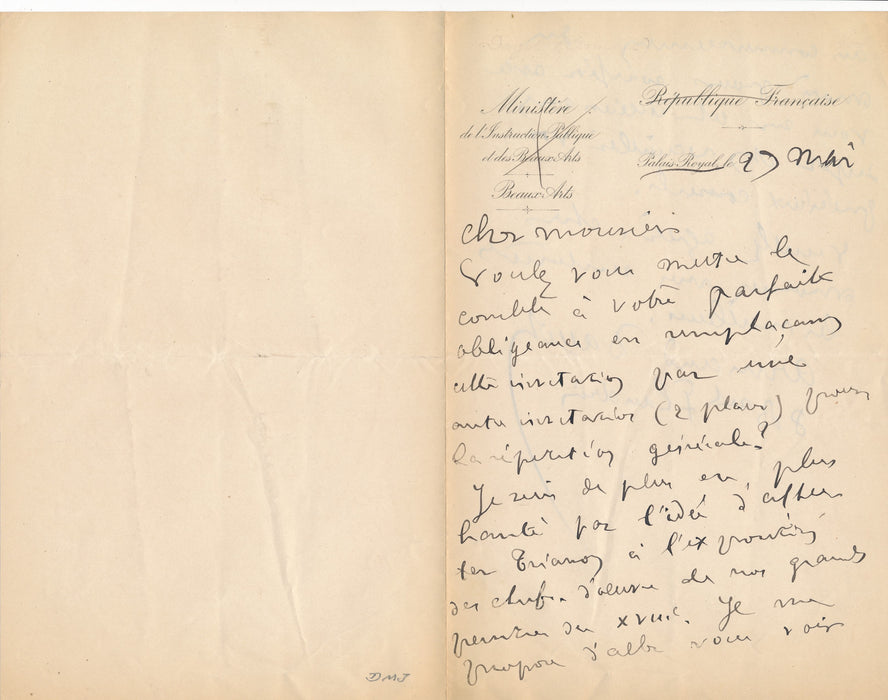 Ministère
de l'Instruction Publique
et des Beaux-Arts
Beaux-Arts
République Française
Palais-Royal, le 27 Mai
Cher monsieur
Voulez vous mettre le
comble à votre parfaite
obligeance en remplaçant
cette invitation par une
autre invitation (2 places) pour
la répétition générale?
Je suis de plus en plus
hanté par l'idée d'affec
ter Trianon à l'exposition
des chefs-d'œuvre de nos grands
peintres du XVIIIe. Je me
propose d'aller vous voir